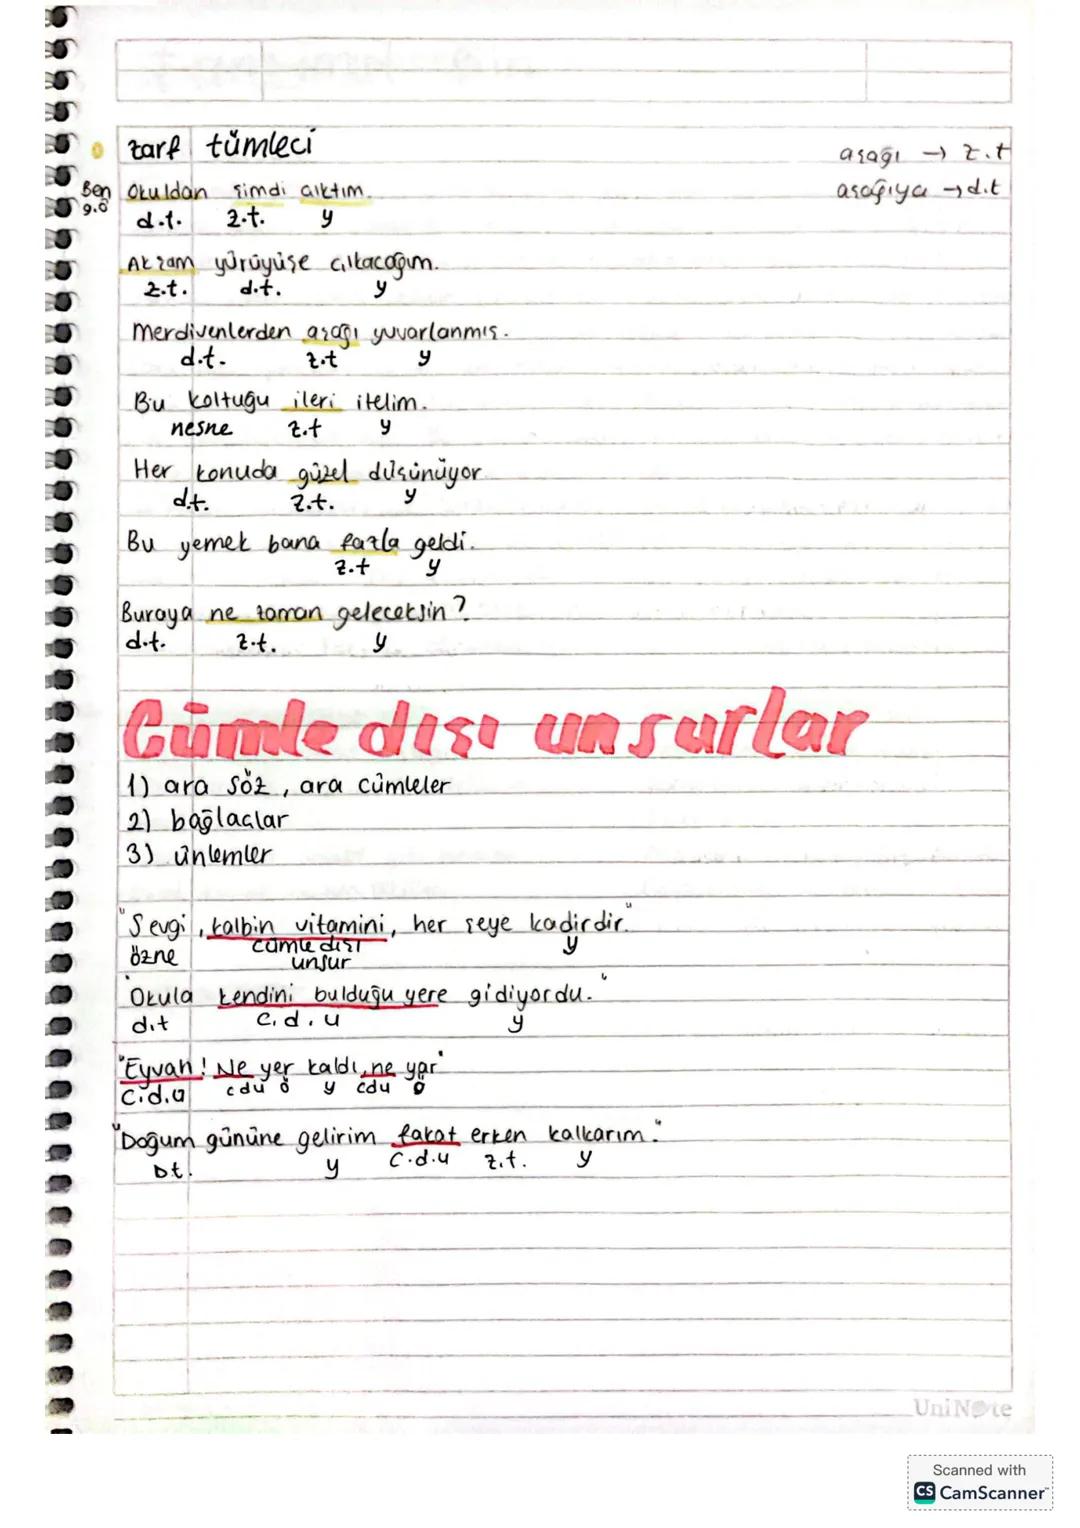 zarf tümleci
aşağı → z.t
aşağıya → d.t
Ben Okuldan şimdi çıktım.
g.ö d.t. z.t. y
Akşam yürüyüşe çıkacağım.
z.t. d.t. y
Merdivenlerden aşağı yuvarlanmış.
d.t. z.t y
Bu koltuğu ileri itelim.
nesne z.t y
Her konuda güzel düşünüyor.
d.t. z.t. y
Bu yemek bana fazla geldi.
z.t y
Buraya ne zaman geleceksin?
d.t. z.t. y
Cümle dışı unsurlar
1) ara söz, ara cümleler
2) bağlaçlar
3) ünlemler
"Sevgi, kalbin vitamini, her şeye kadirdir."
özne cümle dışı y
unsur
"Okula kendini bulduğu yere gidiyordu."
d.t c.d.u y
"Eyvah! Ne yer kaldı, ne yar"
c.d.u cdu ö y cdu ö
"Doğum gününe gelirim fakat erken kalkarım."
Dt. y c.d.u z.t. y
UniNote
Scanned with
CS CamScanner